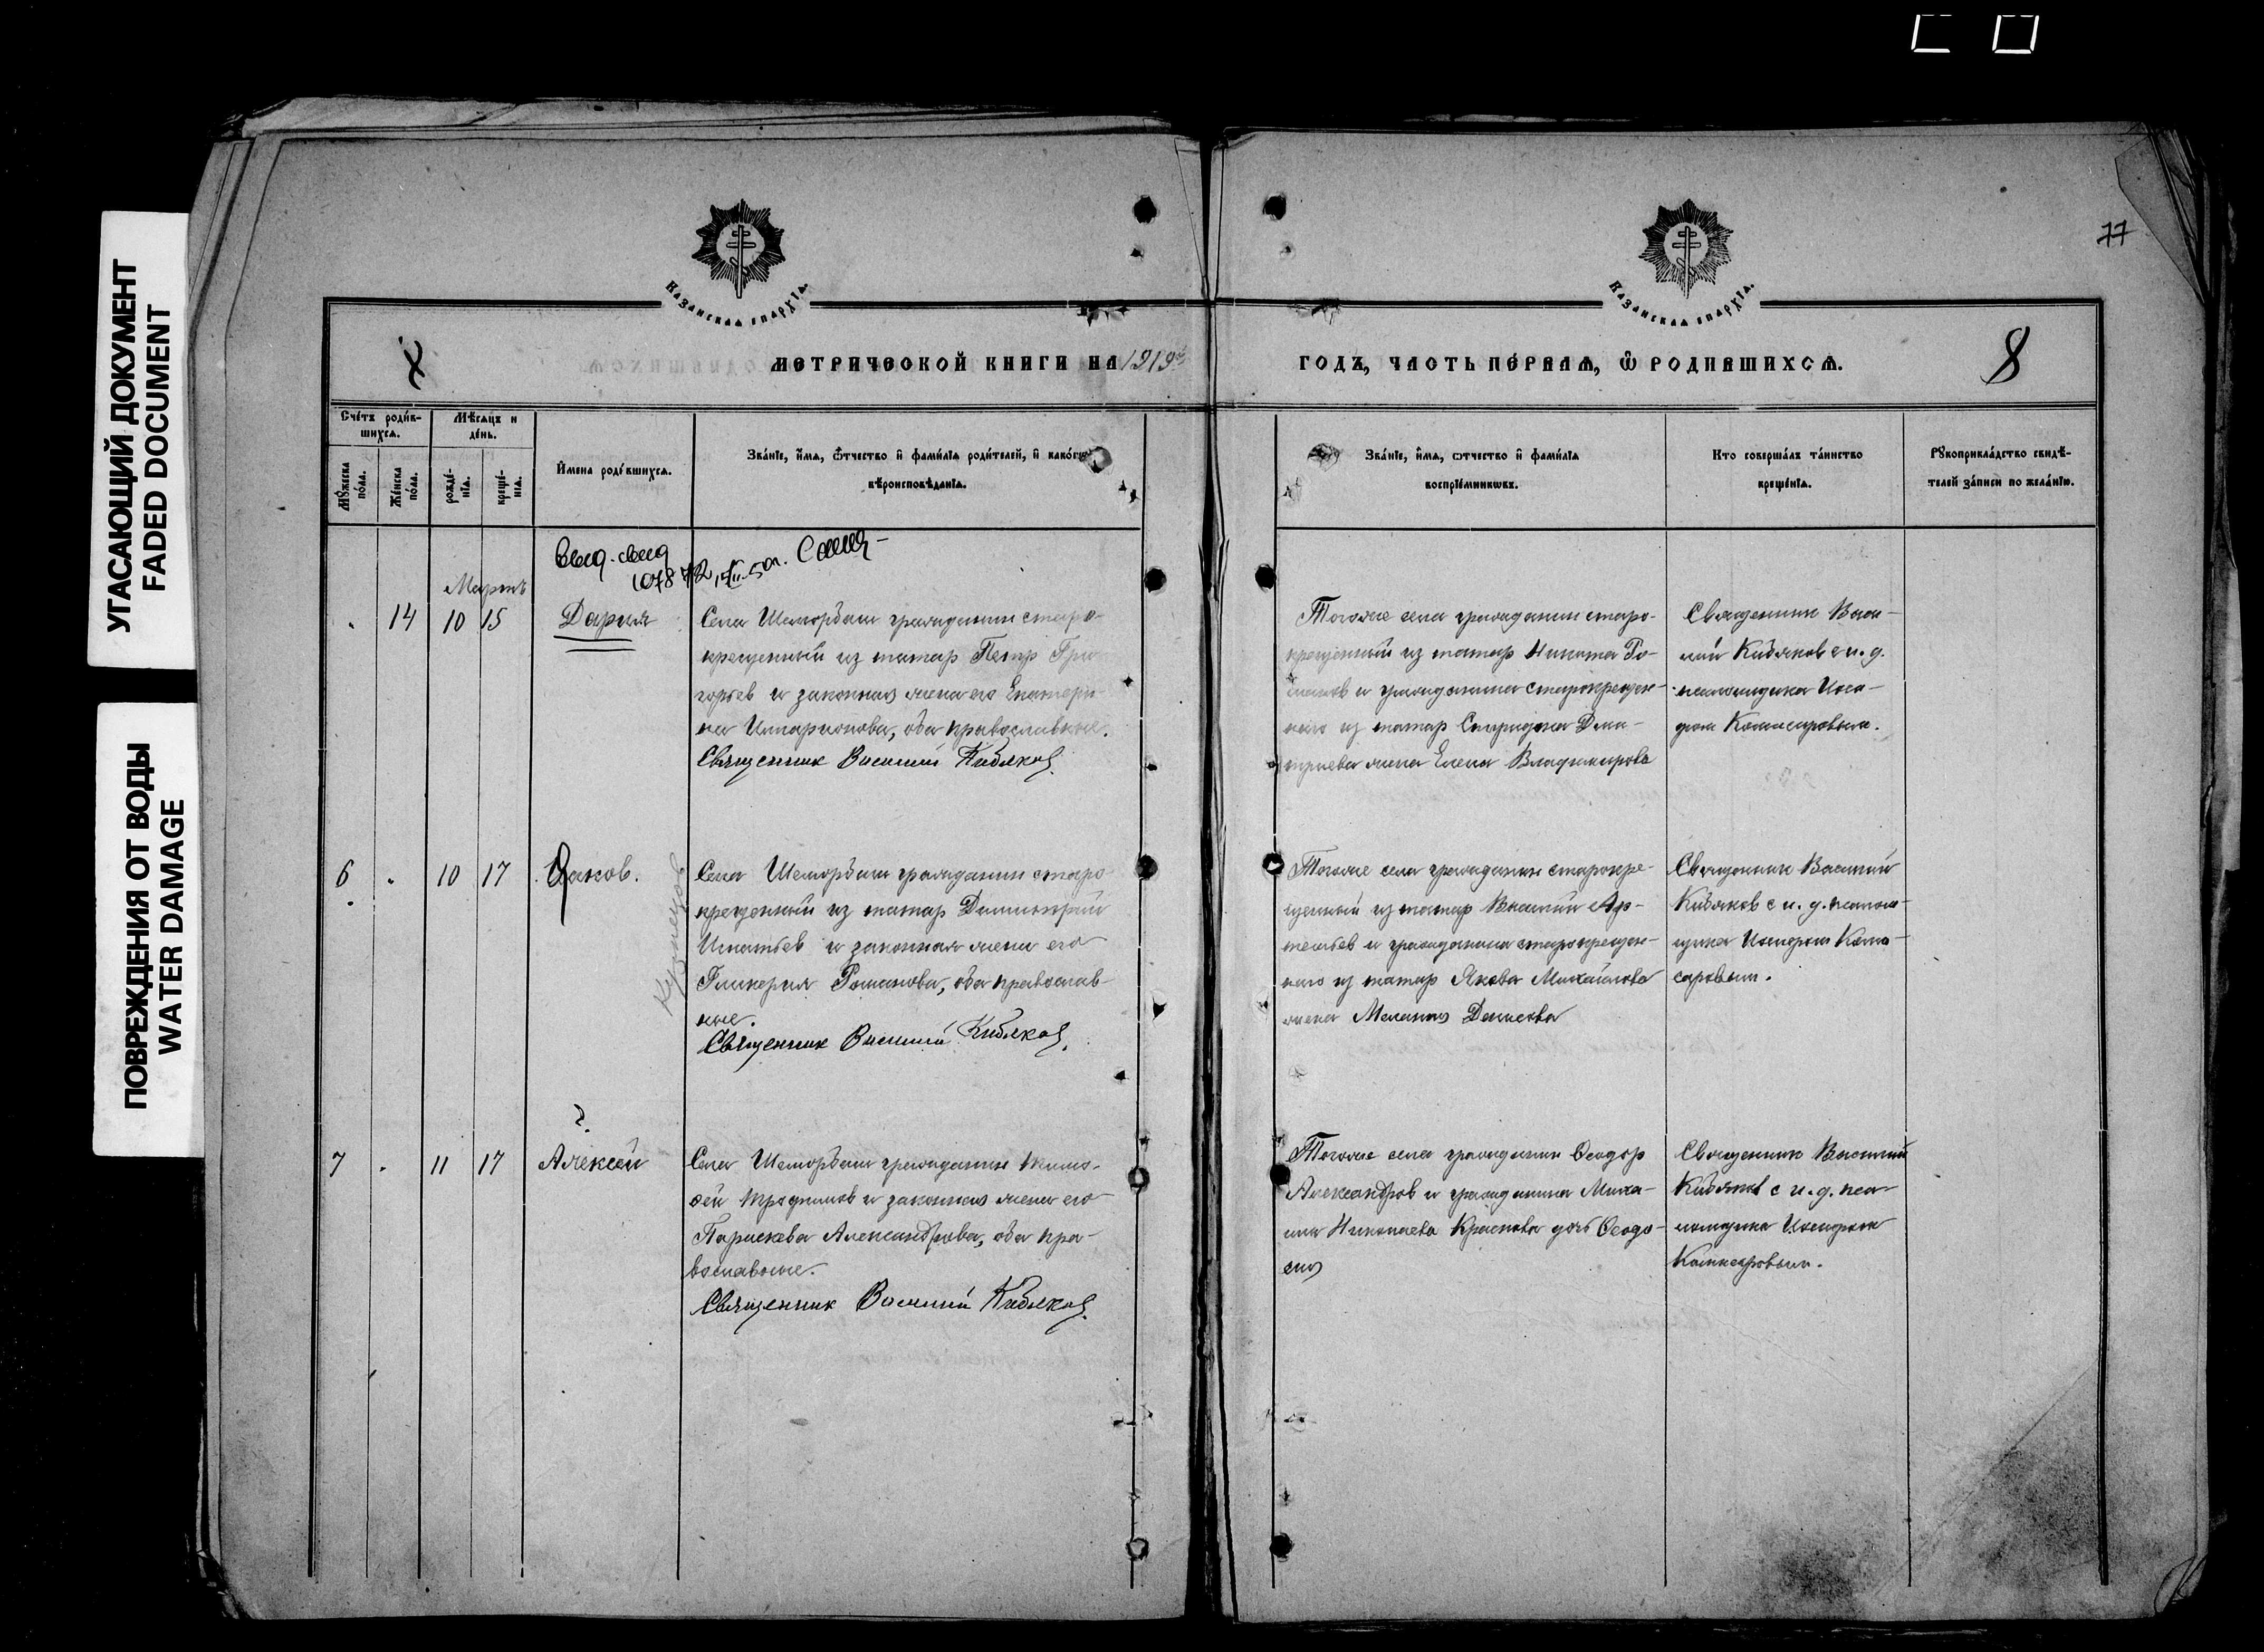 УГАСАЮЩИЙ ДОКУМЕНТ
FADED DOCUMENT
ПОВРЕЖДЕНИЯ ОТ ВОДЫ
WATER DAMAGE
77
Казанская епархїѧ.
Казанская епархїѧ.
МЕТРИЧЕСКОЙ КНИГИ НА 1919й
ГОДЪ, ЧАСТЬ ПЕ́РВАѦ, Ѽ РОДИВШИХСѦ.
8
Сче́тъ роди́в-
шихсѧ.
Мѣ́сѧцъ и
де́нь.
Мꙋ́жеска
по́ла.
Же́нска
по́ла.
рожде́-
нїѧ.
креще́-
нїѧ.
И҆мена роди́вшихсѧ.
Зва́нїе, и҆́мѧ, ѻ҆́тчество и҆ фами́лїѧ роди́телей, и҆ како́гѡ
вѣроисповѣ́данїѧ.
Зва́нїе, и҆́мѧ, ѻтчество и҆ фами́лїѧ
воспрїе́мникѡвъ.
Кто соверша́лъ та́инство
креще́нїѧ.
Рꙋкоприкла́дство свидѣ́-
телей за́писи по жела́нїю.
Выд. свид
Мартъ
14 10 15 Дария
Села Шеморбаш гражданин старо-
крещенный из татар Петр Гри-
горьев и законная жена его Екатери-
на Иларионова, оба православные.
Священник Василий Кибяков.
Тогоже села гражданин старо-
крещенный из татар Никита Ро-
манов и гражданина старокрещен-
наго из татар Спиридона Дми-
триева жена Елена Владимирова
Священник Васи-
лий Кибяков с и. д.
псаломщика Иси-
дром Комисаровым.
6 10 17 Яаков.
Кузнецов
Села Шеморбаш гражданин старо
крещенный из татар Димитрий
Игнатьев и законная жена его
Гликерия Романова, оба православ-
ные.
Священник Василий Кибяков.
Тогоже села гражданин старокре-
щенный из татар Василий Ар-
темьев и гражданина старокрещен-
наго из татар Якова Михайлова
жена Мелания Денисова
Священник Василий
Кибяков с и. д. псалом-
щика Исидром Коми-
саровым.
?
7 11 17 Алексей
Села Шеморбаш гражданин Тимо-
фей Трофимов и законная жена его
Параскева Александрова, оба пра-
вославные.
Священник Василий Кибяков.
Тогоже села гражданин Феодор
Александров и гражданина Миха-
ила Николаева Краснова дочь Феодо-
сия
Священник Василий
Кибяков с и. д. пса-
ломщика Исидром
Комисаровым.